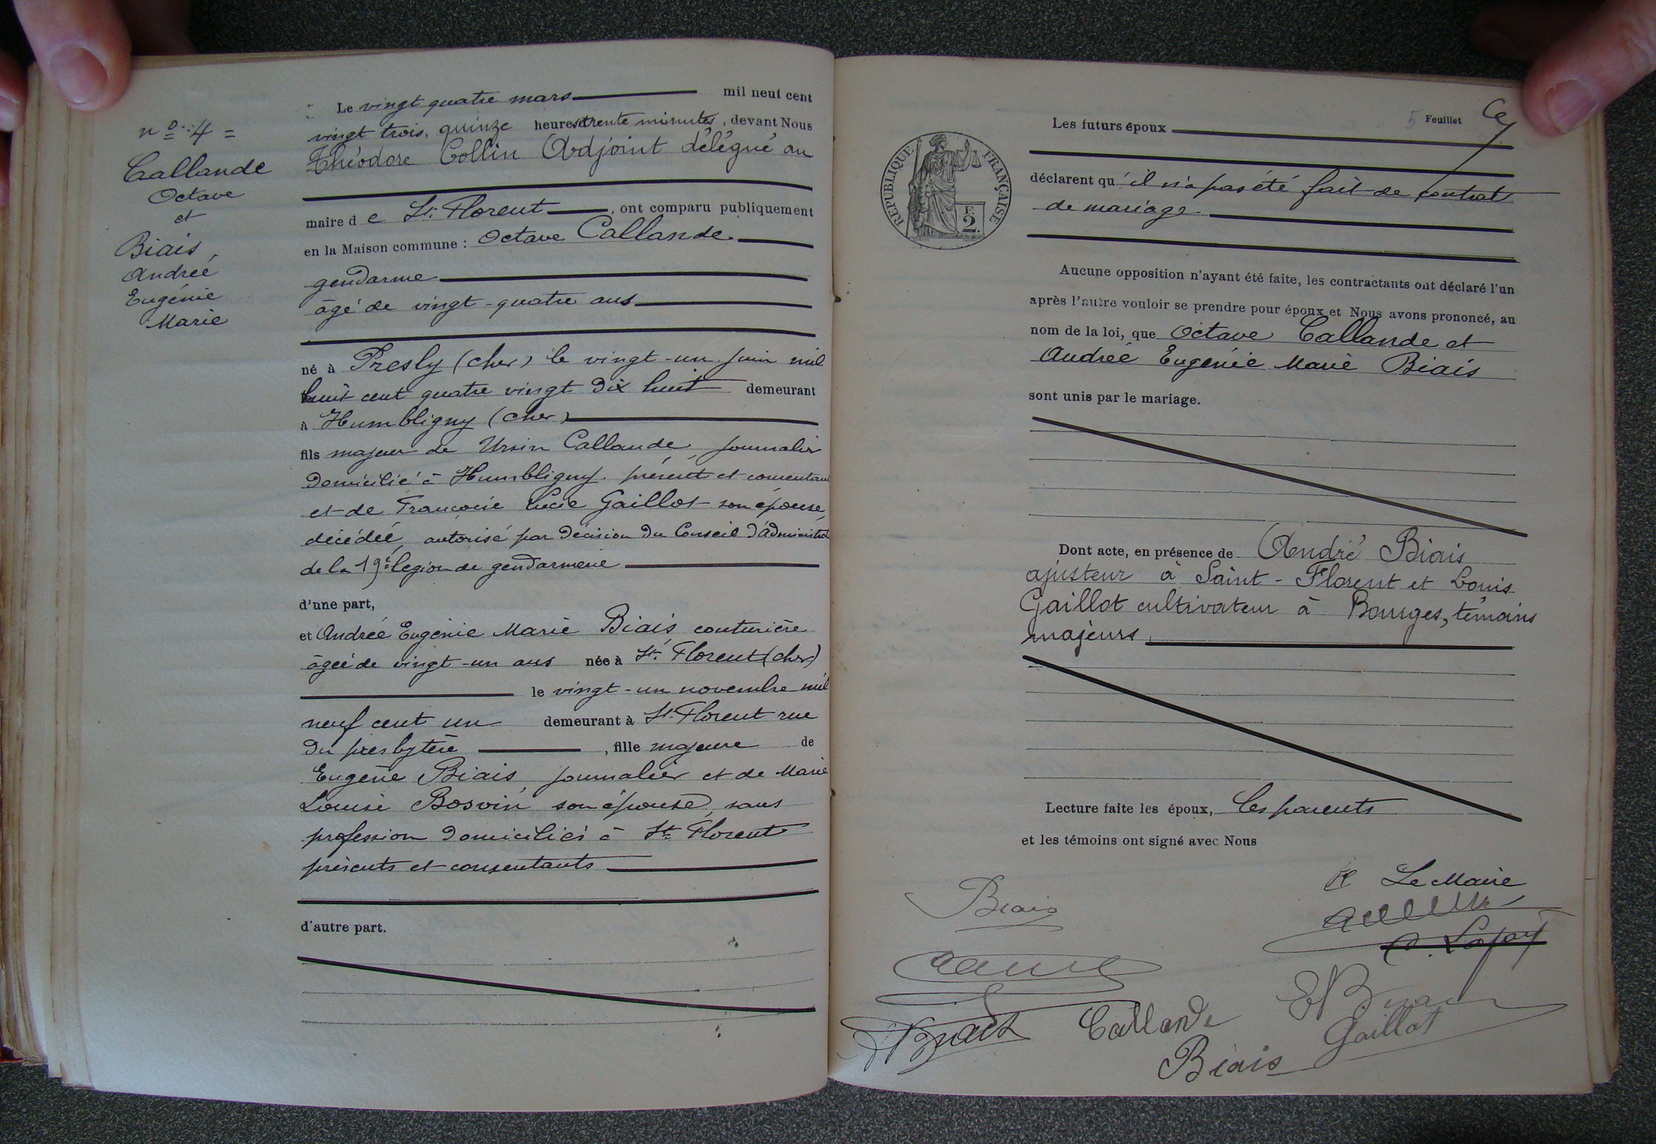 n° 4 =
Callande
Octave
et
Biais
Andrée
Eugénie
Marie
Le vingt quatre mars mil neuf cent
vingt trois, quinze heures trente minutes, devant Nous
Théodore Collin Adjoint délégué au
maire de St. Florent, ont comparu publiquement
en la Maison commune : Octave Callande
gendarme
âgé de vingt-quatre ans
né à Presly (cher) le vingt-un juin mil
huit cent quatre vingt dix huit demeurant
à Humbligny (Cher)
fils majeur de Ursin Callande, journalier
domicilié à Humbligny présent et consentant
et de Françoise Lucie Gaillot son épouse,
décédée, autorisé par décision du Conseil d'Administrat
de la 19e légion de gendarmerie
d'une part,
et Andrée Eugénie Marie Biais couturière
âgée de vingt-un ans née à St. Florent (cher)
le vingt-un novembre mil
neuf cent un demeurant à St. Florent rue
du presbytère, fille majeure de
Eugène Biais, journalier et de Marie
Louise Bosvin son épouse, sans
profession domiciliés à St. Florent
présents et consentants
d'autre part.
5 Feuillet
Les futurs époux
RÉPUBLIQUE FRANÇAISE
2
déclarent qu'il n'a pas été fait de contrat
de mariage
Aucune opposition n'ayant été faite, les contractants ont déclaré l'un
après l'autre vouloir se prendre pour époux et Nous avons prononcé, au
nom de la loi, que Octave Callande et
Andrée Eugénie Marie Biais
sont unis par le mariage.
Dont acte, en présence de André Biais
ajusteur à Saint-Florent et Louis
Gaillot cultivateur à Bourges, témoins
majeurs.
Lecture faite les époux, les parents
et les témoins ont signé avec Nous
Le Maire
Biais
Callande
Gaillot
Biais